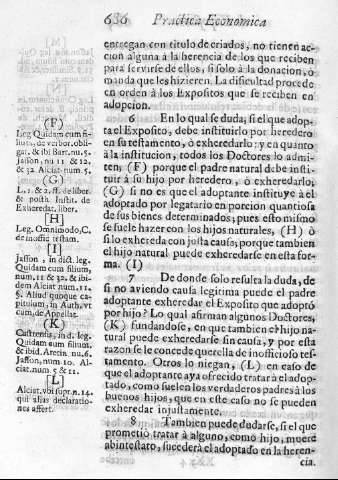 636 Practica Economica
entregan con titulo de criados, no tienen ac-
cion alguna à la herencia de los que reciben
para servirse de ellos, si solo à la donacion, ò
manda que les hizieren. La dificultad procede
en orden à los Expositos que se reciben en
adopcion.
6 En lo qual se duda, si el que adop-
ta el Exposito, debe instituirlo por heredero
en su testamento, ò exheredarlo: y en quanto
à la institucion, todos los Doctores lo admi-
ten, (F) porque el padre natural debe insti-
tuir à su hijo por heredero, ò exheredarlo,
(G) si no es que el adoptante instituye à el
adoptado por legatario en porcion quantiosa
de sus bienes determinados; pues esto mismo
se suele hazer con los hijos naturales, (H) ò
si lo exhereda con justa causa; porque tambien
el hijo natural puede exheredarse en esta for-
ma. (I)
7 De donde solo resulta la duda, de
si no aviendo causa legitima puede el padre
adoptante exheredar el Exposito que adoptò
por hijo? Lo qual afirman algunos Doctores,
(K) fundandose, en que tambien el hijo na-
tural puede exheredarse sin causa, y por esta
razon se le concede querella de inoficioso tes-
tamento. Otros lo niegan, (L) en caso de
que el adoptante aya ofrecido tratar à el adop-
tado, como suelen los verdaderos padres à los
buenos hijos, que en este caso no se pueden
exheredar injustamente.
8 Tambien puede dudarse, si el que
prometiò tratar à alguno, como hijo, muere
abintestato, sucederà el adoptado en la heren-
cia.
(F)
Leg. Quidam cum fi-
lium, de verbor. obli-
gat. & ibi Bart. nu. 5.
Jasson, nu 11 & 12.
& 32. Alciat num. 5.
(G)
L. 1. & 2. ff. de liber.
& posth. Instit. de
Exheredat. liber.
[H]
Leg. Omnimodo, C.
de inoffic testam.
[I]
Jasson, in dict. leg.
Quidam cum filium,
num. 11 & 32. & ibi-
dem Alciat num. 11.
§. Aliud quoque ca-
pitulum, in Auth. vt
cum, de Appellat.
(K)
Castrensis, in d. leg.
Quidam cum filium,
& ibid. Aretin. nu. 6.
Jasson, num. 10. Al-
ciat. num. 5 & 11.
[L]
Alciat. vbi supr. n. 14.
qui alias declaratio-
nes affert.